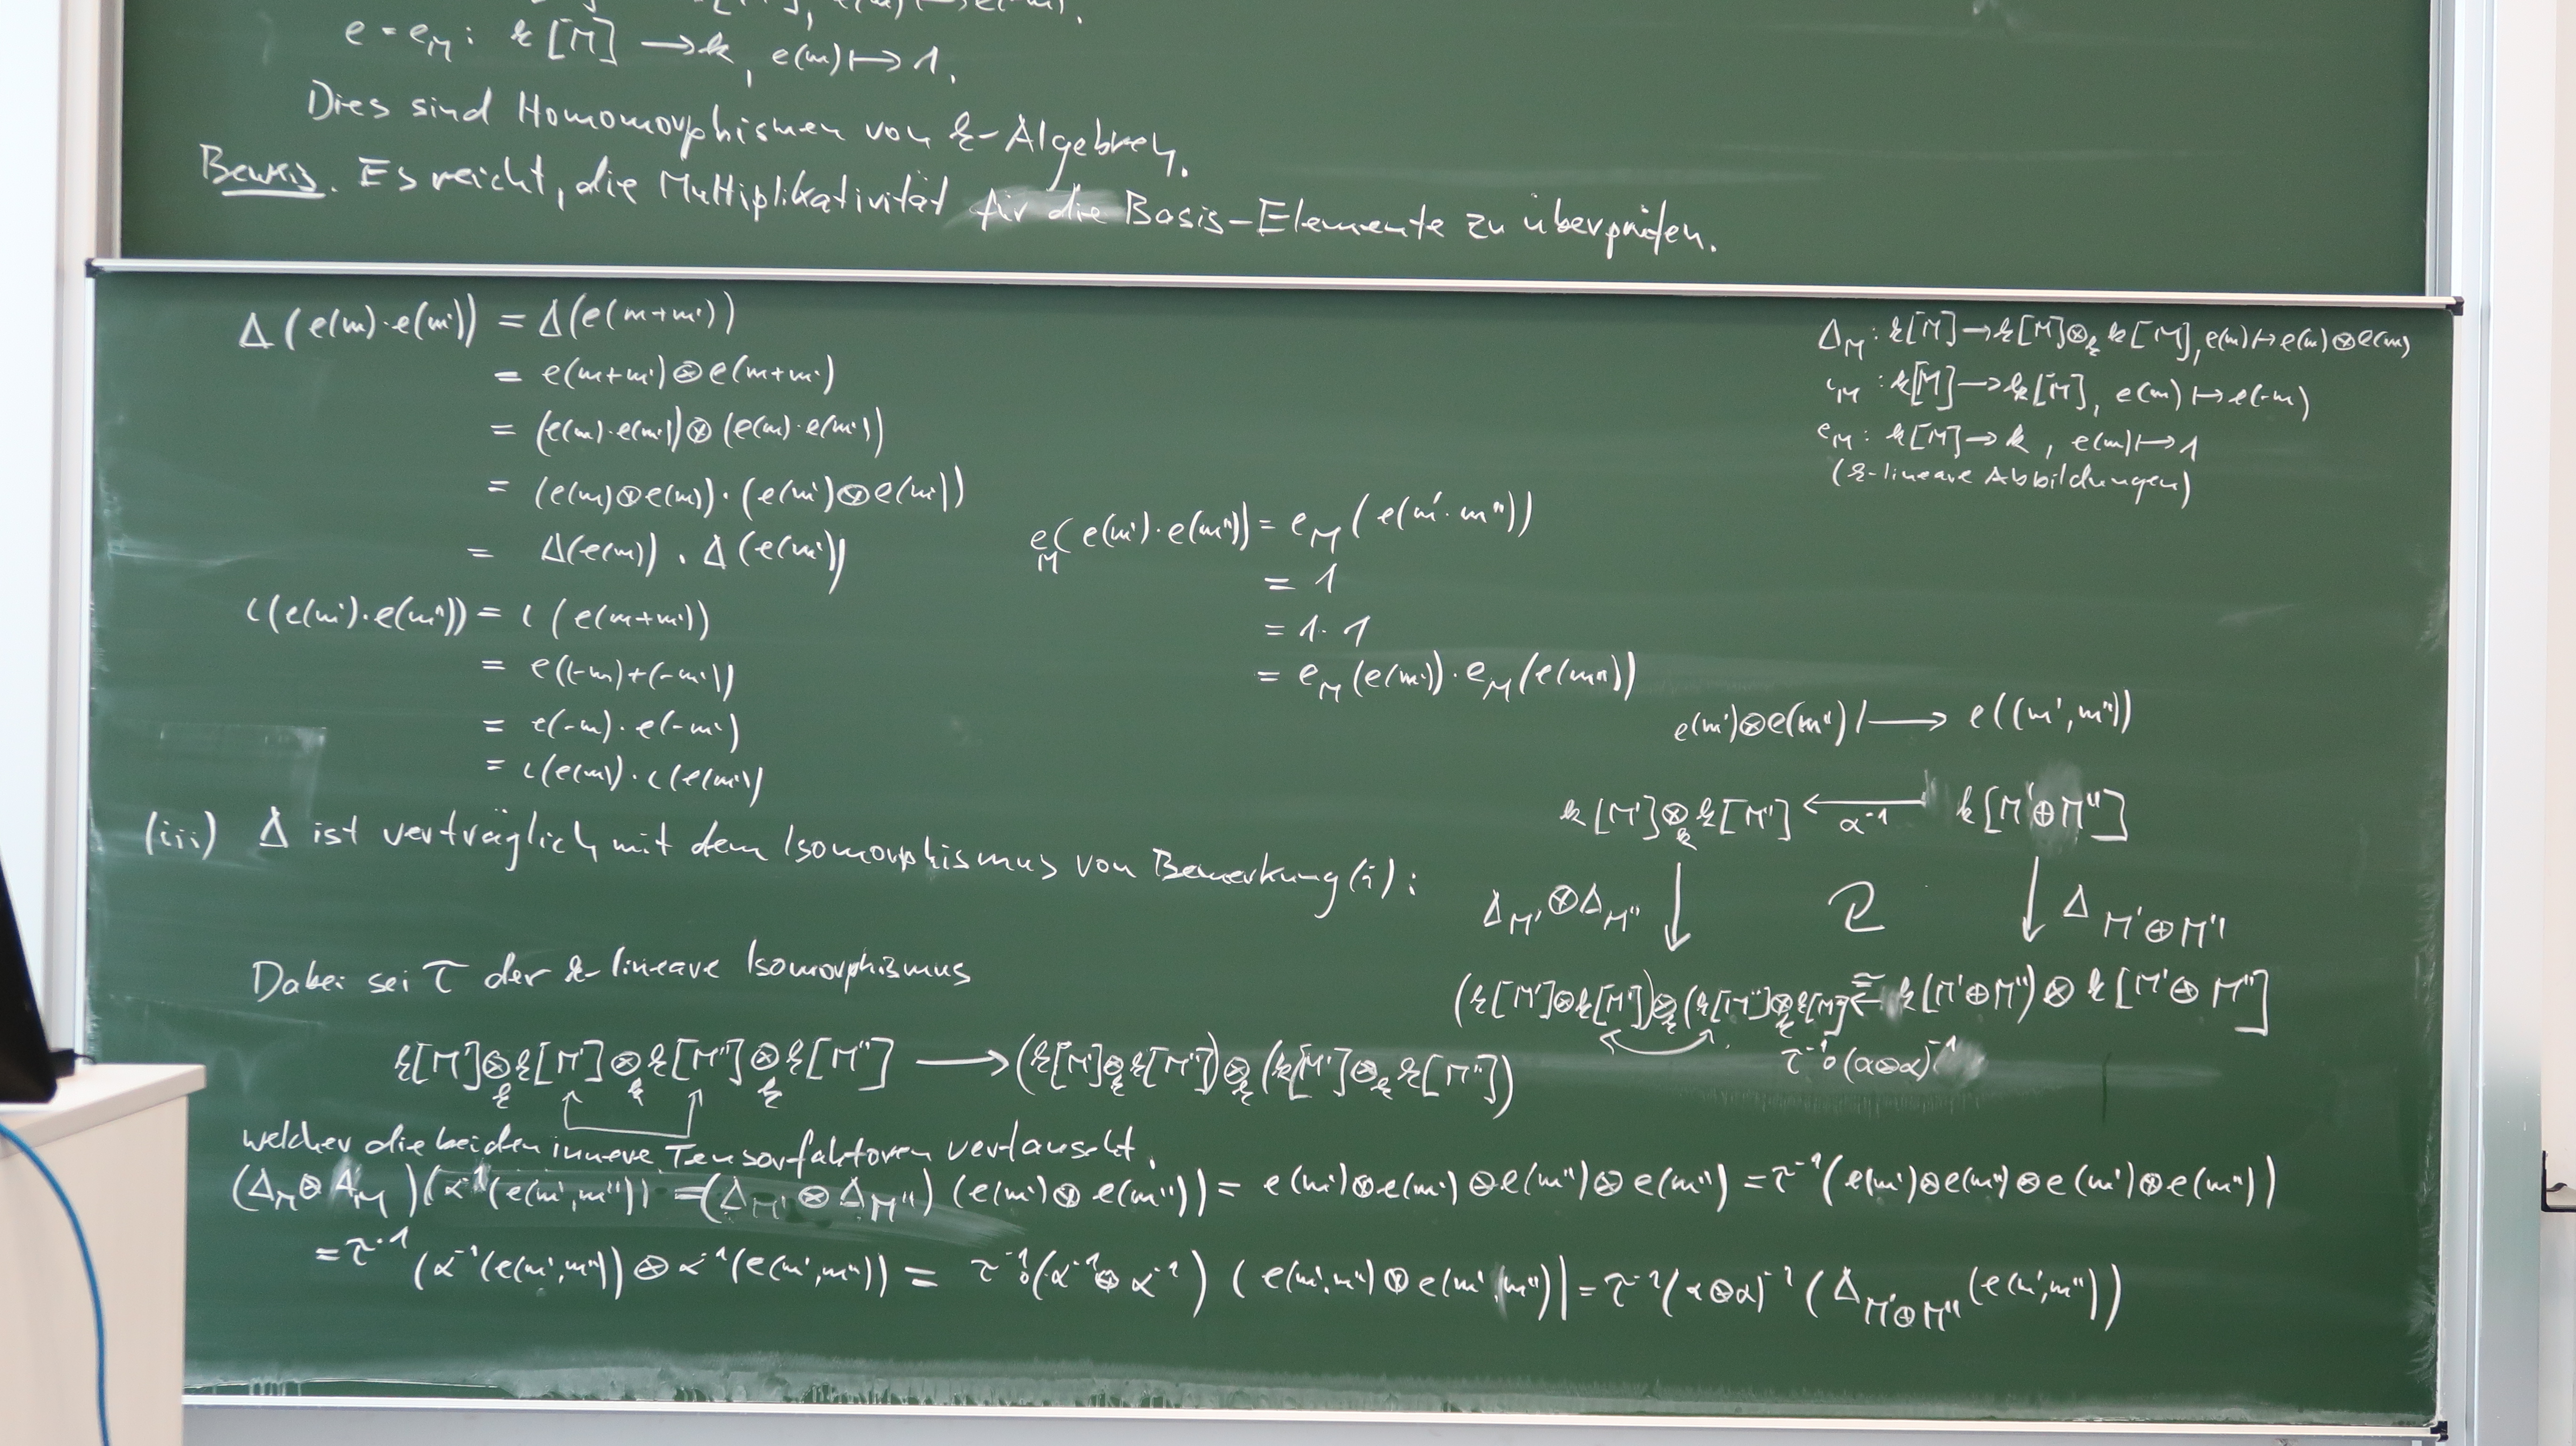 e = e_M : k[M] → k, e(m) ↦ 1.
Dies sind Homomorphismen von k-Algebren.
Beweis. Es reicht, die Multiplikativität für die Basis-Elemente zu überprüfen.
Δ(e(m)·e(m')) = Δ(e(m+m'))
= e(m+m') ⊗ e(m+m')
= (e(m)·e(m')) ⊗ (e(m)·e(m'))
= (e(m)⊗e(m)) · (e(m')⊗e(m'))
= Δ(e(m)) · Δ(e(m'))
ι(e(m')·e(m'')) = ι(e(m+m'))
= e((-m)+(-m'))
= e(-m)·e(-m')
= ι(e(m))·ι(e(m'))
e_M(e(m')·e(m'')) = e_M(e(m'·m''))
= 1
= 1·1
= e_M(e(m'))·e_M(e(m''))
Δ_M : k[M] → k[M]⊗_k k[M], e(m) ↦ e(m)⊗e(m)
ι_M : k[M] → k[M], e(m) ↦ e(-m)
e_M : k[M] → k, e(m) ↦ 1
(k-lineare Abbildungen)
(iii) Δ ist verträglich mit dem Isomorphismus von Bemerkung (i):
e(m')⊗e(m'') ↦ e((m',m''))
k[M']⊗_k k[M''] ← α⁻¹ k[M'⊕M'']
Δ_M'⊗Δ_M'' ↓ ↓ Δ_M'⊕M''
(k[M']⊗k[M'])⊗_k(k[M'']⊗_k k[M'']) ≅← k[M'⊕M'']⊗k[M'⊕M'']
τ⁻¹∘(α⊗α)⁻¹
Dabei sei τ der k-lineare Isomorphismus
k[M']⊗_k k[M']⊗_k k[M'']⊗_k k[M''] → (k[M']⊗_k k[M''])⊗_k(k[M']⊗_k k[M''])
welcher die beiden innere Tensorfaktoren vertauscht.
(Δ_M⊗Δ_M)(α⁻¹(e(m',m'')) = (Δ_M'⊗Δ_M'')(e(m')⊗e(m'')) = e(m')⊗e(m')⊗e(m'')⊗e(m'') = τ⁻¹(e(m')⊗e(m'')⊗e(m')⊗e(m''))
= τ⁻¹(α⁻¹(e(m',m''))⊗α⁻¹(e(m',m'')) = τ⁻¹∘(α⁻¹⊗α⁻¹)(e(m',m'')⊗e(m',m'')) = τ⁻¹(α⊗α)⁻¹(Δ_M'⊕M''(e(m',m''))